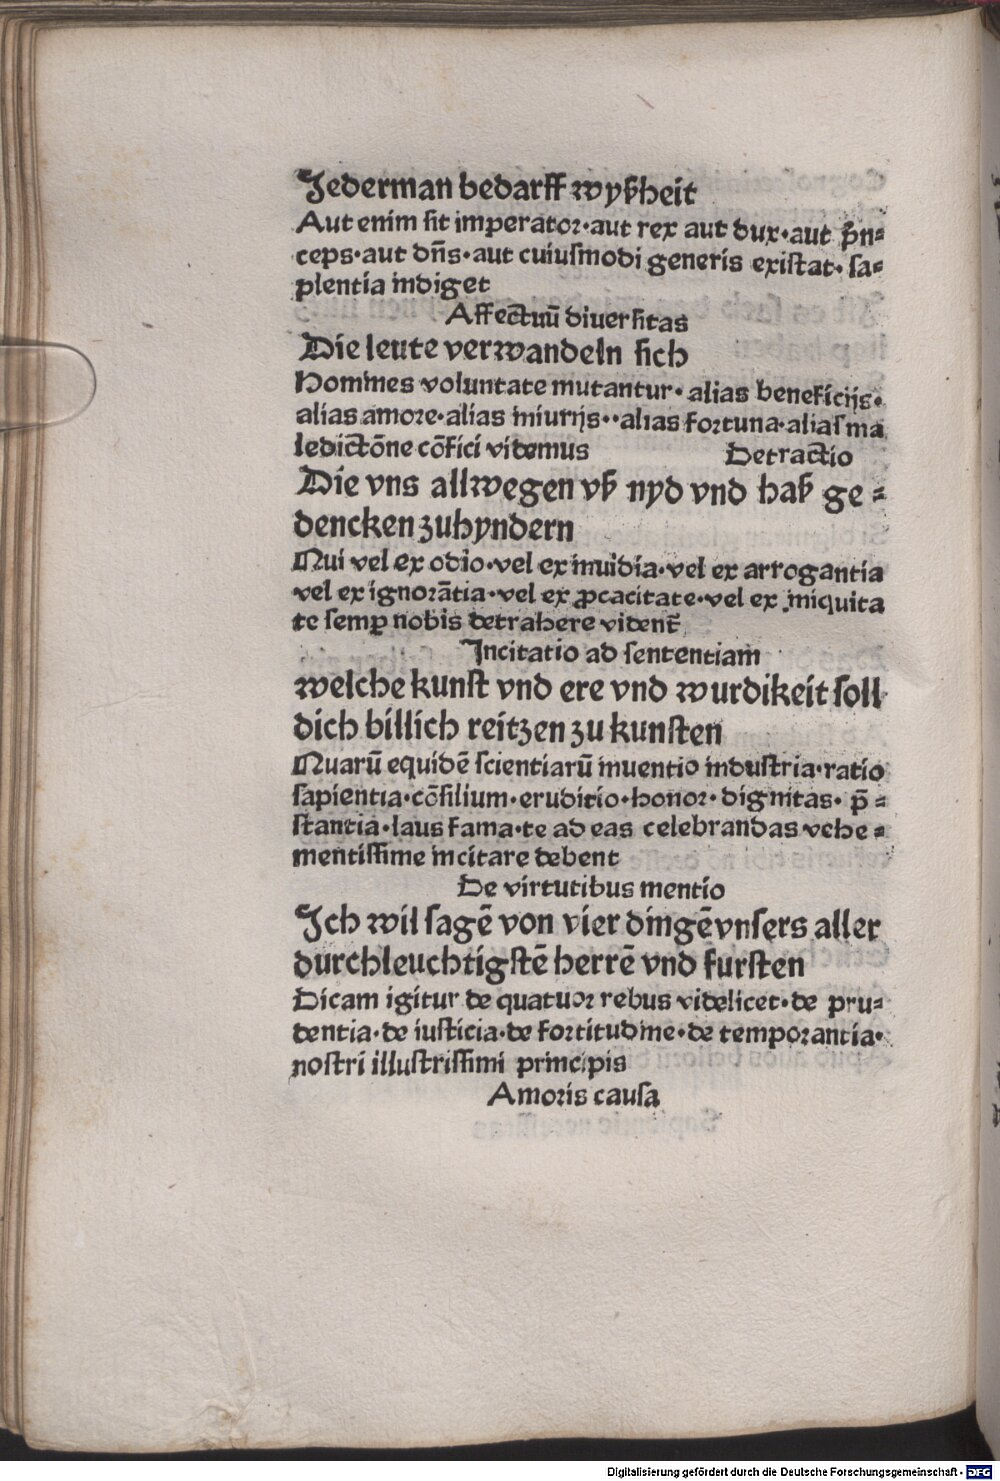 Jederman bedarff wyßheit
Aut enim sit imperator·aut rex aut dux·aut p̄n-
ceps·aut dn̄s·aut cuiusmodi generis existat· sa-
pientia indiget
Affectuū diuersitas
Die leute verwandeln sich
Homines voluntate mutantur· alias beneficijs·
alias amore·alias iniurijs··alias fortuna·alias ma
ledictōne cōfici videmus Detractio
Die vns allwegen vß nyd vnd haß ge-
dencken zuhyndern
Qui vel ex odio·vel ex inuidia·vel ex arrogantia
vel ex ignorātia·vel ex ꝓcacitate·vel ex iniquita
te semꝑ nobis detrahere vident̄
Incitatio ad sententiam
welche kunst vnd ere vnd wurdikeit soll
dich billich reitzen zu kunsten
Quarū equidē scientiarū inuentio industria·ratio
sapientia·cōsilium·eruditio·honor·dignitas· p̄-
stantia·laus fama·te ad eas celebrandas vehe-
mentissime incitare debent
De virtutibus mentio
Ich wil sagē von vier dingē vnsers aller
durchleuchtigstē herrē vnd fursten
Dicam igitur de quatuor rebus videlicet·de pru-
dentia·de iusticia·de fortitudine·de temporantia·
nostri illustrissimi principis
Amoris causa
Digitalisierung gefördert durch die Deutsche Forschungsgemeinschaft - DFG